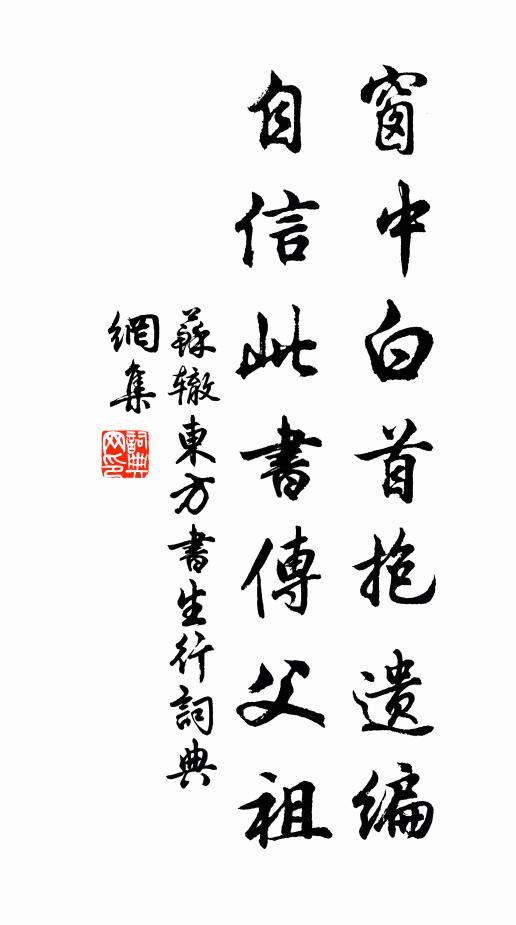 窗中白首抱遺編
自信此書傳父祖
蘇轍東方書生行詞典
網集
詞典
网印